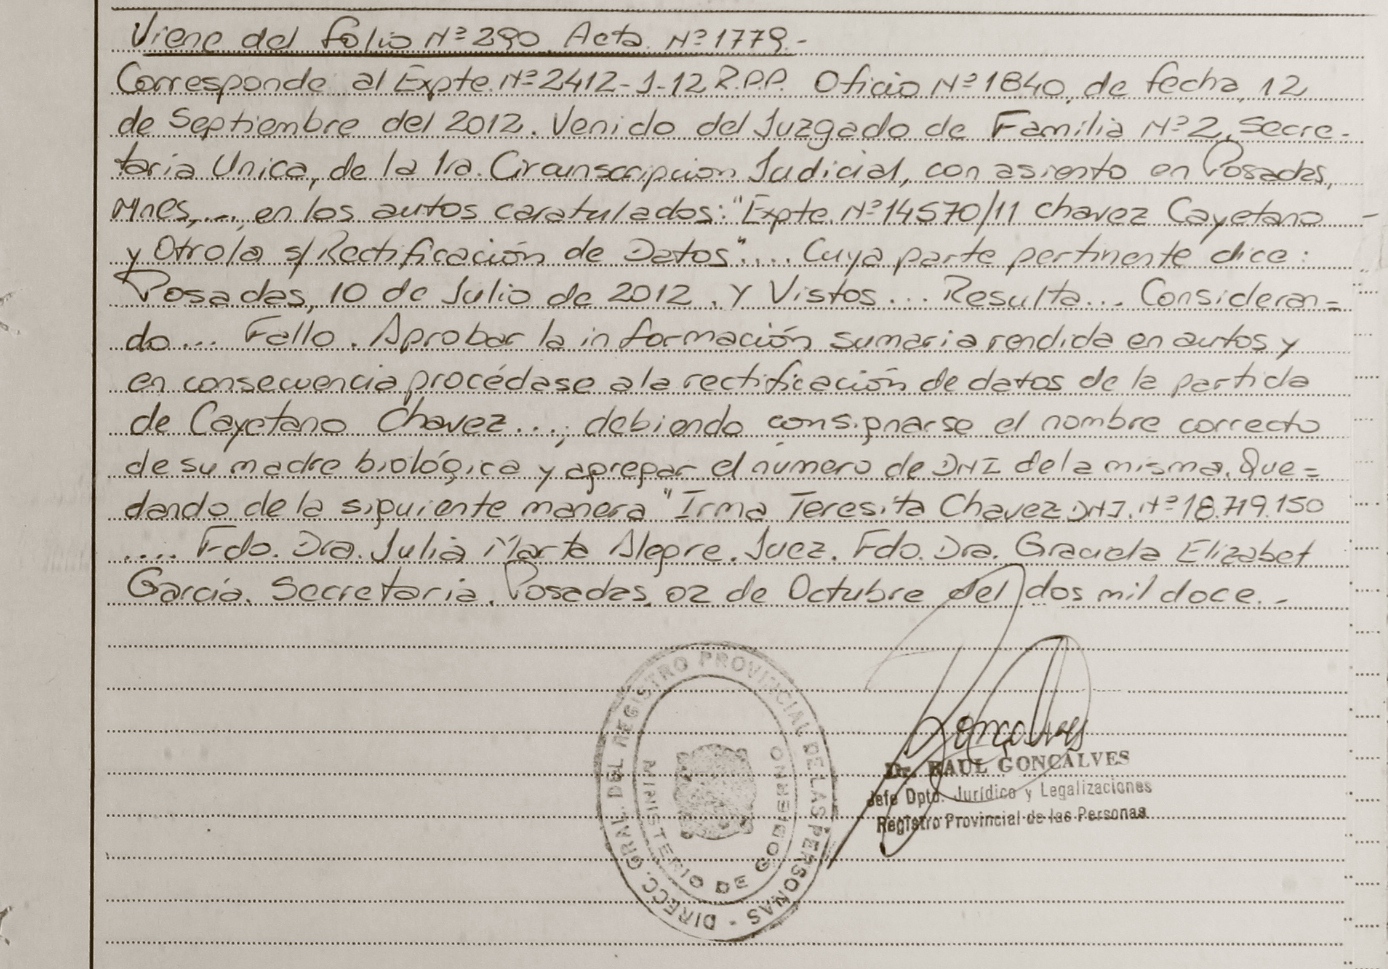 Viene del folio Nº 290 Acta Nº 1779.-
Corresponde al Expte. Nº 2412-J-12 R.P.P. Oficio Nº 1840, de fecha, 12
de Septiembre del 2012. Venido del Juzgado de Familia Nº 2, Secre-
taria Unica, de la 1ra. Circunscripcion Judicial, con asiento en Posadas,
Mnes,..., en los autos caratulados: "Expte. Nº 14570/11 Chavez Cayetano
y Otro/a s/ Rectificación de Datos".... Cuya parte pertinente dice:
Posadas, 10 de Julio de 2012. Y Vistos... Resulta... Consideran=
do... Fallo. Aprobar la información sumaria rendida en autos y
en consecuencia procédase a la rectificación de datos de la partida
de Cayetano Chavez...; debiendo consignarse el nombre correcto
de su madre biológica y agregar el número de DNI de la misma. Que=
dando de la siguiente manera "Irma Teresita Chavez DNI. Nº 18.719.150
.... Fdo. Dra. Julia Marta Alegre. Juez. Fdo. Dra. Graciela Elizabet
García. Secretaria. Posadas, 02 de Octubre del dos mil doce.-
DIRECC. GRAL. DEL REGISTRO PROVINCIAL DE LAS PERSONAS -
MINISTERIO DE GOBIERNO
Gonçalves
Dr. RAUL GONÇALVES
Jefe Dpto. Jurídico y Legalizaciones
Registro Provincial de las Personas